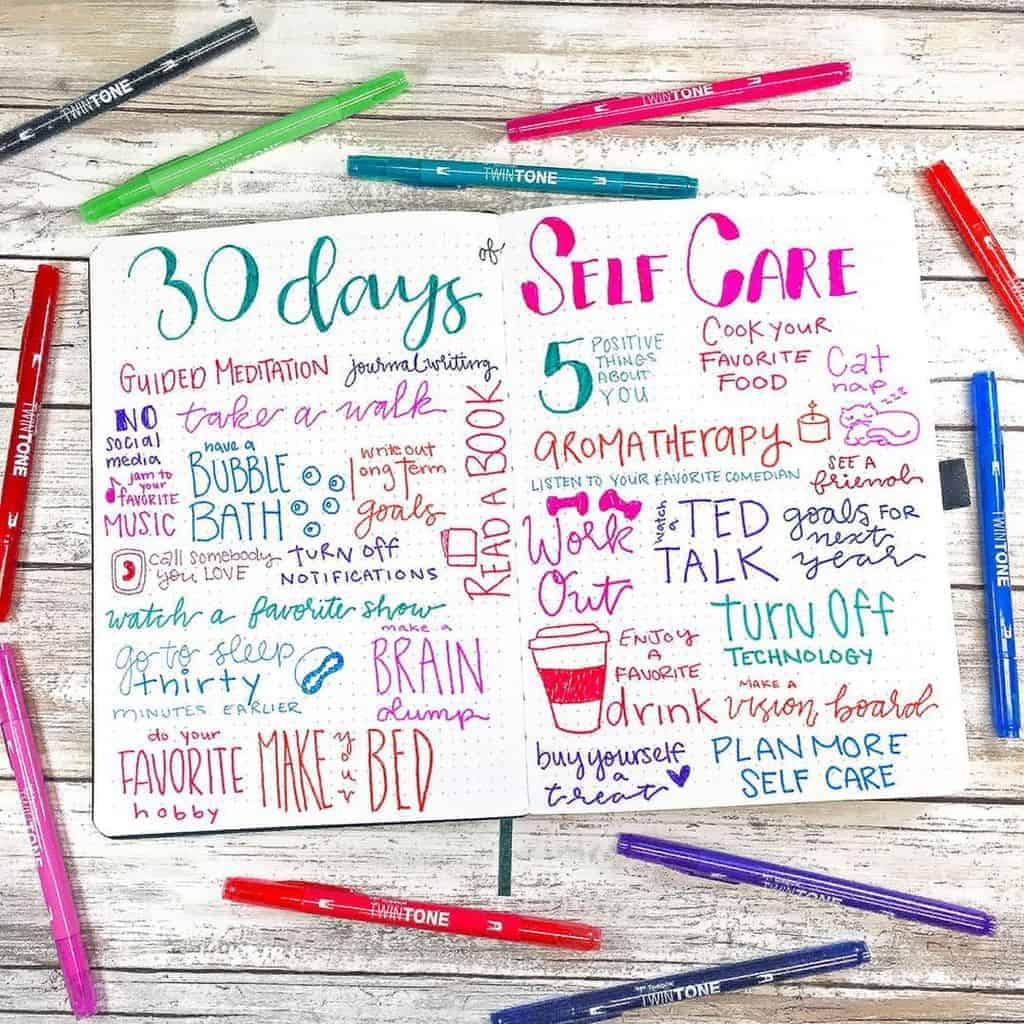 TWINTONE
TWINTONE
TWINTONE
30 days
of
SELF CARE
GUIDED MEDITATION
journal writing
NO
social
media
take a walk
jam to
your
favorite
MUSIC
have a
BUBBLE
BATH
write out
long term
goals
READ A BOOK
call somebody
you LOVE
TURN OFF
NOTIFICATIONS
watch a favorite show
go to sleep
thirty
MINUTES EARLIER
make a
BRAIN
dump
do your
FAVORITE
hobby
MAKE
your
BED
5
POSITIVE
THINGS
ABOUT
YOU
COOK YOUR
FAVORITE
FOOD
Cat
nap
zzz
AROMATHERAPY
LISTEN TO YOUR FAVORITE COMEDIAN
SEE A
friend
Work
Out
watch
a
TED
TALK
goals FOR
next
year
TURN OFF
TECHNOLOGY
ENJOY
A
FAVORITE
drink
MAKE A
vision board
buy yourself
a
treat
PLAN MORE
SELF CARE
TWINTONE
TWINTONE
TWINTONE
TWINTONE
TWINTONE